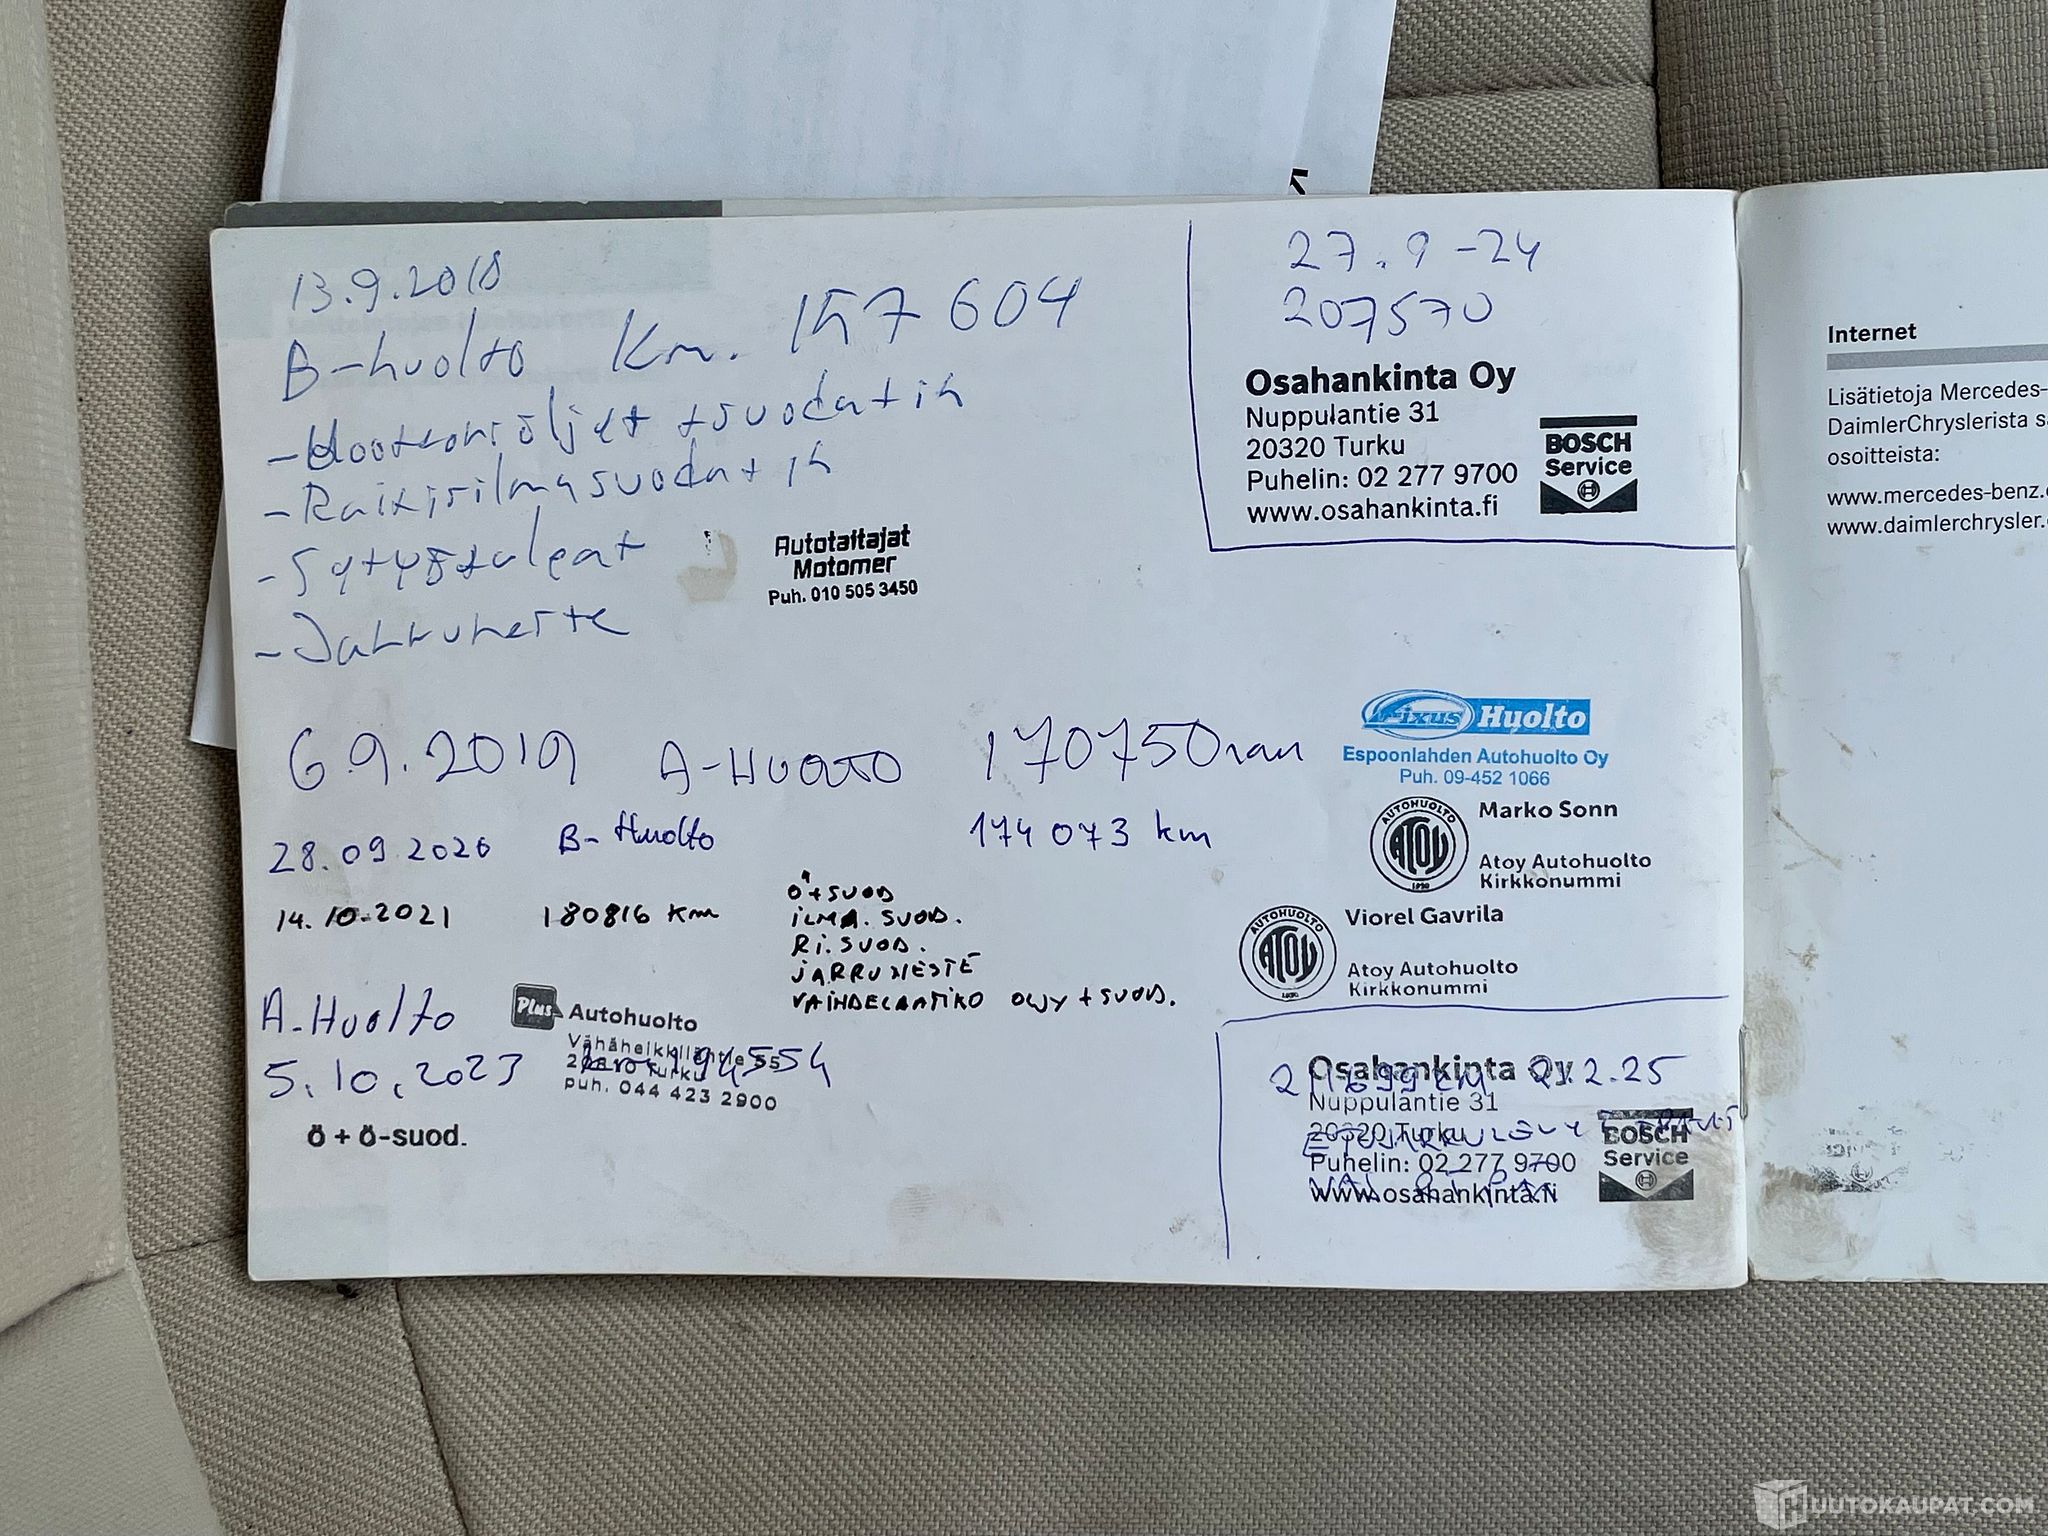 13.9.2018
B-huolto Km. 157 604
- Moottoriöljyt + suodatin
- Raitisilmasuodatin
- Sytytystulpat
- Jarruneste
Autotaitajat
Motomer
Puh. 010 505 3450
27.9-24
207570
Osahankinta Oy
Nuppulantie 31
20320 Turku
Puhelin: 02 277 9700
www.osahankinta.fi
BOSCH
Service
6.9.2019 A-Huolto 170750km
Fixus Huolto
Espoonlahden Autohuolto Oy
Puh. 09-452 1066
28.09.2020 B-Huolto 174 073 km
AUTOHUOLTO
ATOY
Marko Sonn
Atoy Autohuolto
Kirkkonummi
14.10.2021 180816 Km
Ö + SUOD
ILMA. SUOD.
RI. SUOD.
JARRUNESTE
VAIHDELAATIKO OLJY + SUOD.
AUTOHUOLTO
ATOY
Viorel Gavrila
Atoy Autohuolto
Kirkkonummi
A-Huolto
5.10.2023 194554
Plus Autohuolto
Vähäheikkiläntie 55
Turku
puh. 044 423 2900
ö + ö-suod.
2.25
Osahankinta Oy
Nuppulantie 31
20320 Turku
Puhelin: 02 277 9700
www.osahankinta.fi
BOSCH
Service
Internet
Lisätietoja Mercedes-
DaimlerChryslerista
osoitteista:
www.mercedes-benz.
www.daimlerchrysler.
UUTOKAUPAT.COM